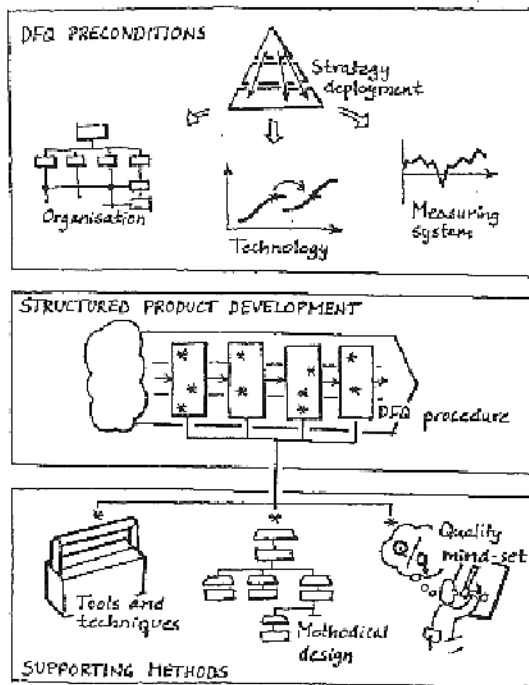 DFQ PRECONDITIONS
Strategy
deployment
Organisation
Technology
Measuring
system
STRUCTURED PRODUCT DEVELOPMENT
DFQ procedure
Tools and
techniques
Methodical
design
Q/q
Quality
mind-set
SUPPORTING METHODS